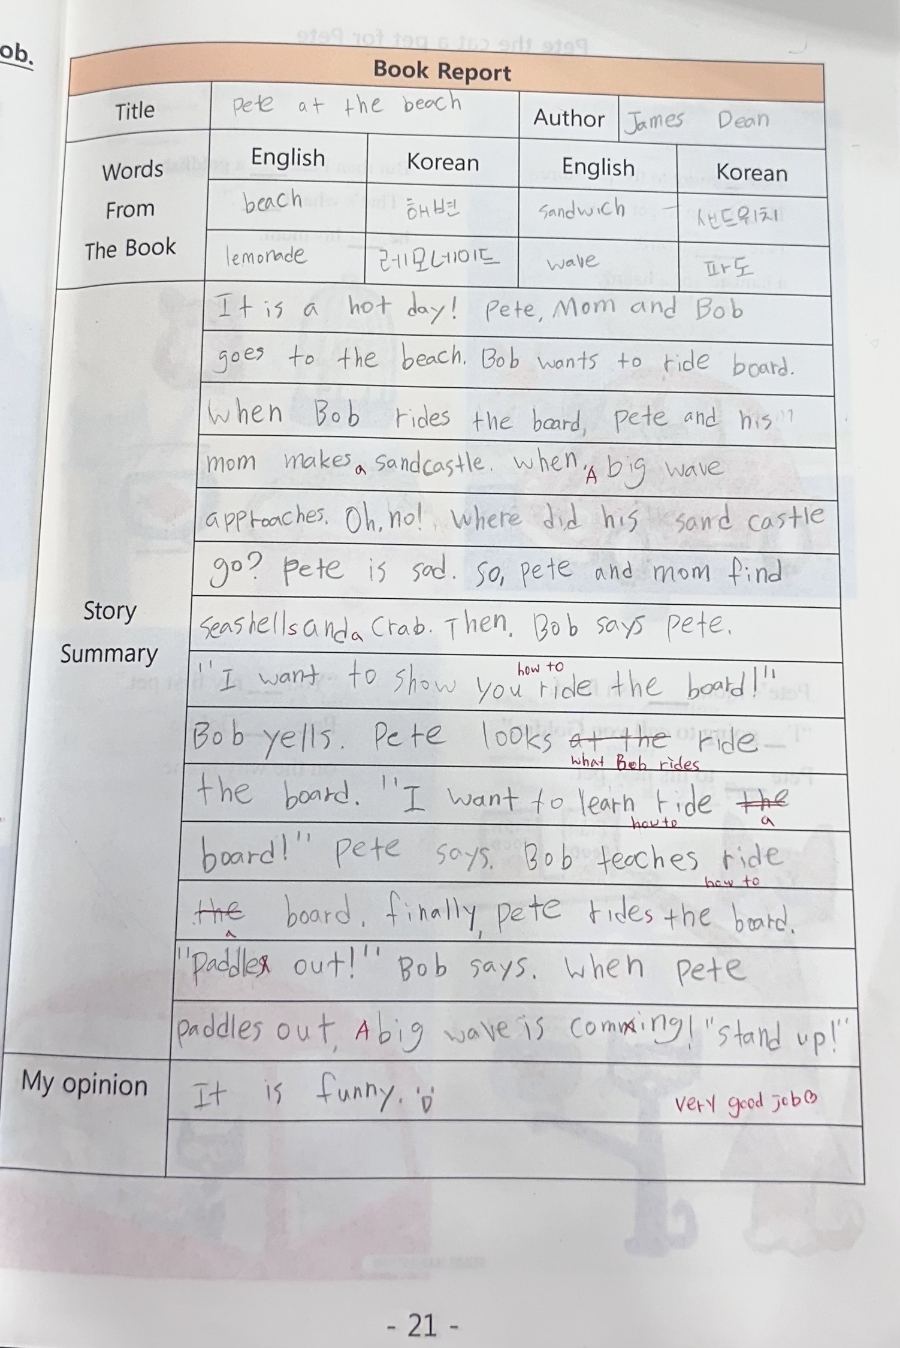 ob.
Book Report
Title
Pete at the beach
Author
James Dean
Words
From
The Book
English
Korean
English
Korean
beach
해변
sandwich
샌드위치
lemonade
레모네이드
wave
파도
Story
Summary
It is a hot day! Pete, Mom and Bob
goes to the beach. Bob wants to ride board.
When Bob rides the board, Pete and his
mom makes a sandcastle. When, A big wave
approaches. Oh, no! Where did his sand castle
go? Pete is sad. So, Pete and mom find
seashells and a crab. Then, Bob says Pete.
"I want to show you how to ride the board!"
Bob yells. Pete looks at the ride
what Bob rides
the board. "I want to learn ride the
how to a
board!" Pete says. Bob teaches ride
how to
the board. finally, Pete rides the board.
a
"Paddles out!" Bob says. When Pete
paddles out, A big wave is comming! "Stand up!"
My opinion
It is funny.
very good job
- 21 -